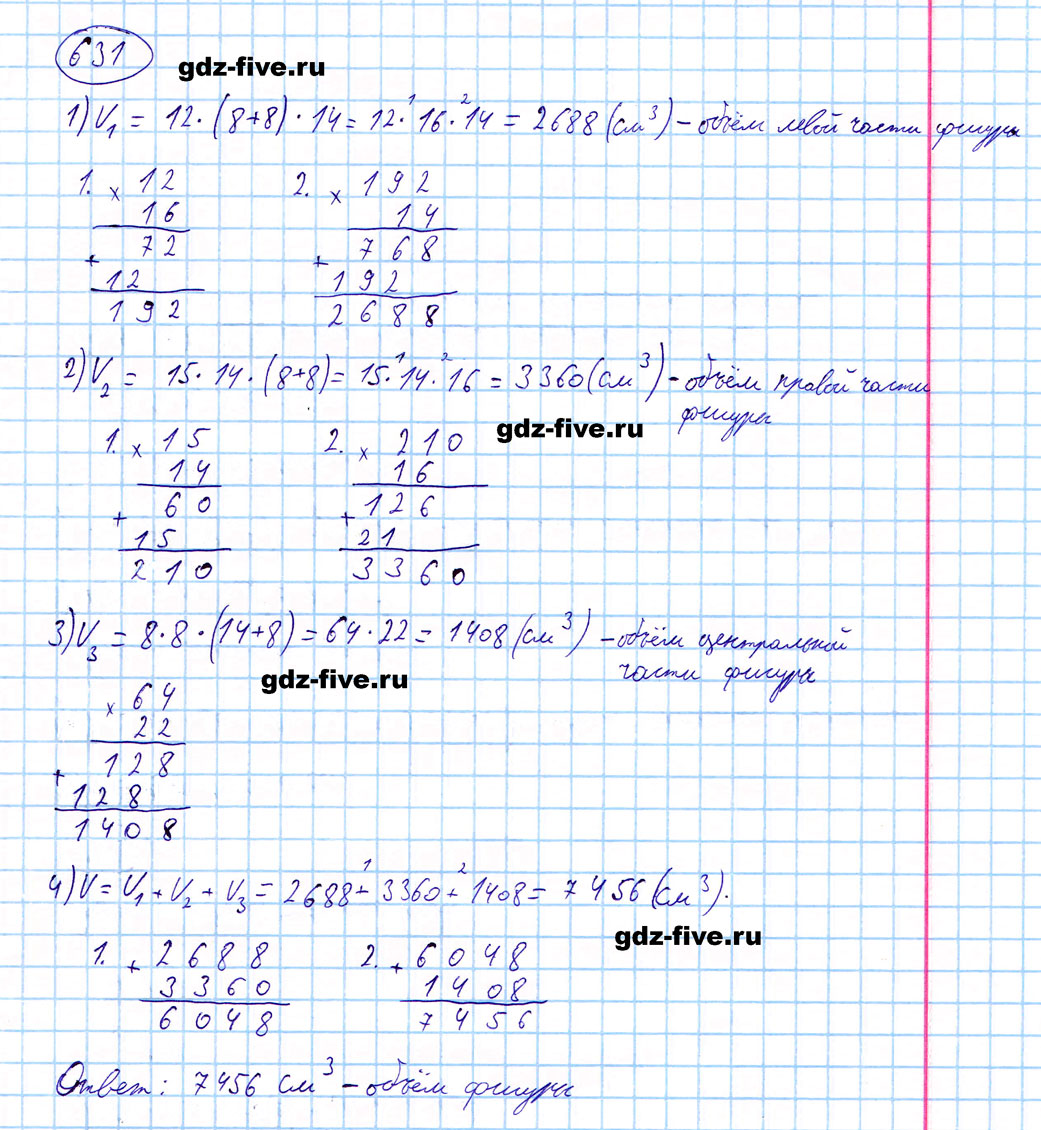 631
gdz-five.ru
1) V₁ = 12·(8+8)·14 = 12·¹16·²14 = 2688 (см³) – объём левой части фигуры
1. × 12
16
72
+
12
192
2. × 192
14
768
+
192
2688
2) V₂ = 15·14·(8+8) = 15·¹14·²16 = 3360 (см³) – объём правой части
фигуры
gdz-five.ru
1. × 15
14
60
+
15
210
2. × 210
16
126
+
21
3360
3) V₃ = 8·8·(14+8) = 64·22 = 1408 (см³) – объём центральной
части фигуры
gdz-five.ru
× 64
22
128
+
128
1408
4) V = V₁ + V₂ + V₃ = 2688 +¹ 3360 +² 1408 = 7456 (см³).
gdz-five.ru
1. + 2688
3360
6048
2. + 6048
1408
7456
Ответ: 7456 см³ – объём фигуры